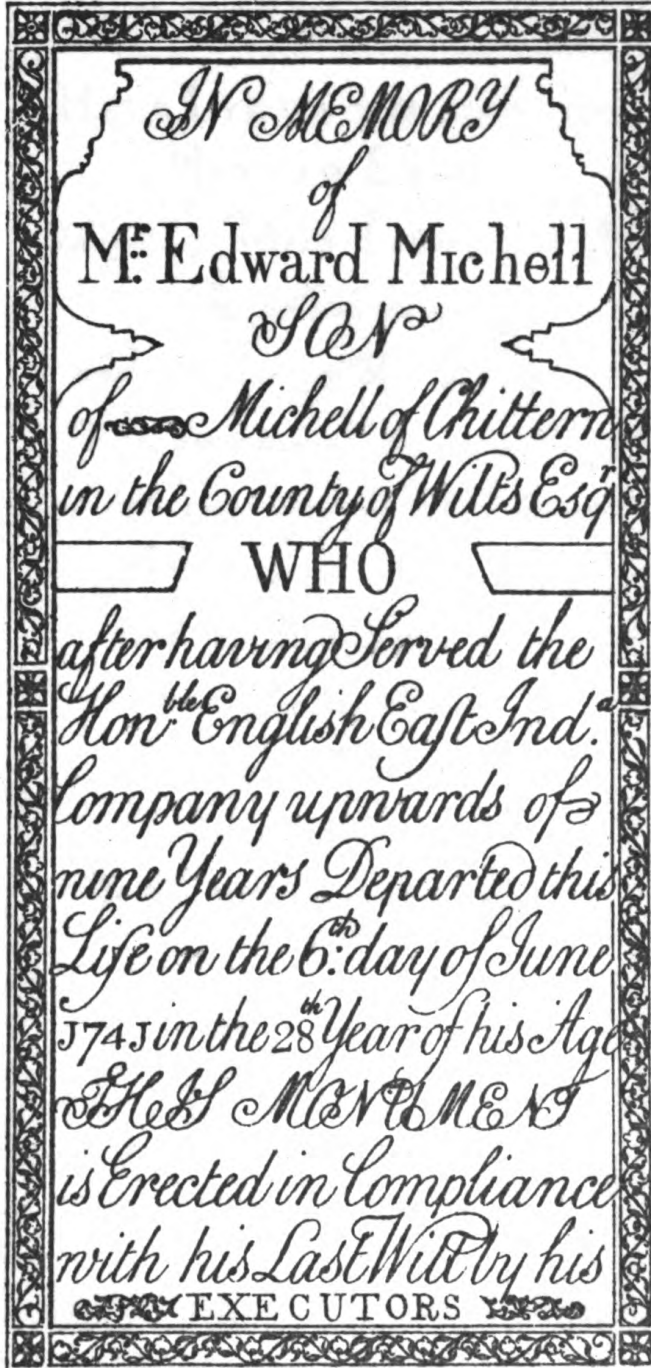 IN MEMORY
of
Mr. Edward Michell
SON
of Michell of Chittern
in the County of Wilts Esqr
WHO
after having Served the
Honble English East Inda.
Company upwards of
nine Years Departed this
Life on the 6th. day of June
J74J in the 28th Year of his Age
THIS MONUMENT
is Erected in Compliance
with his Last Will by his
EXECUTORS